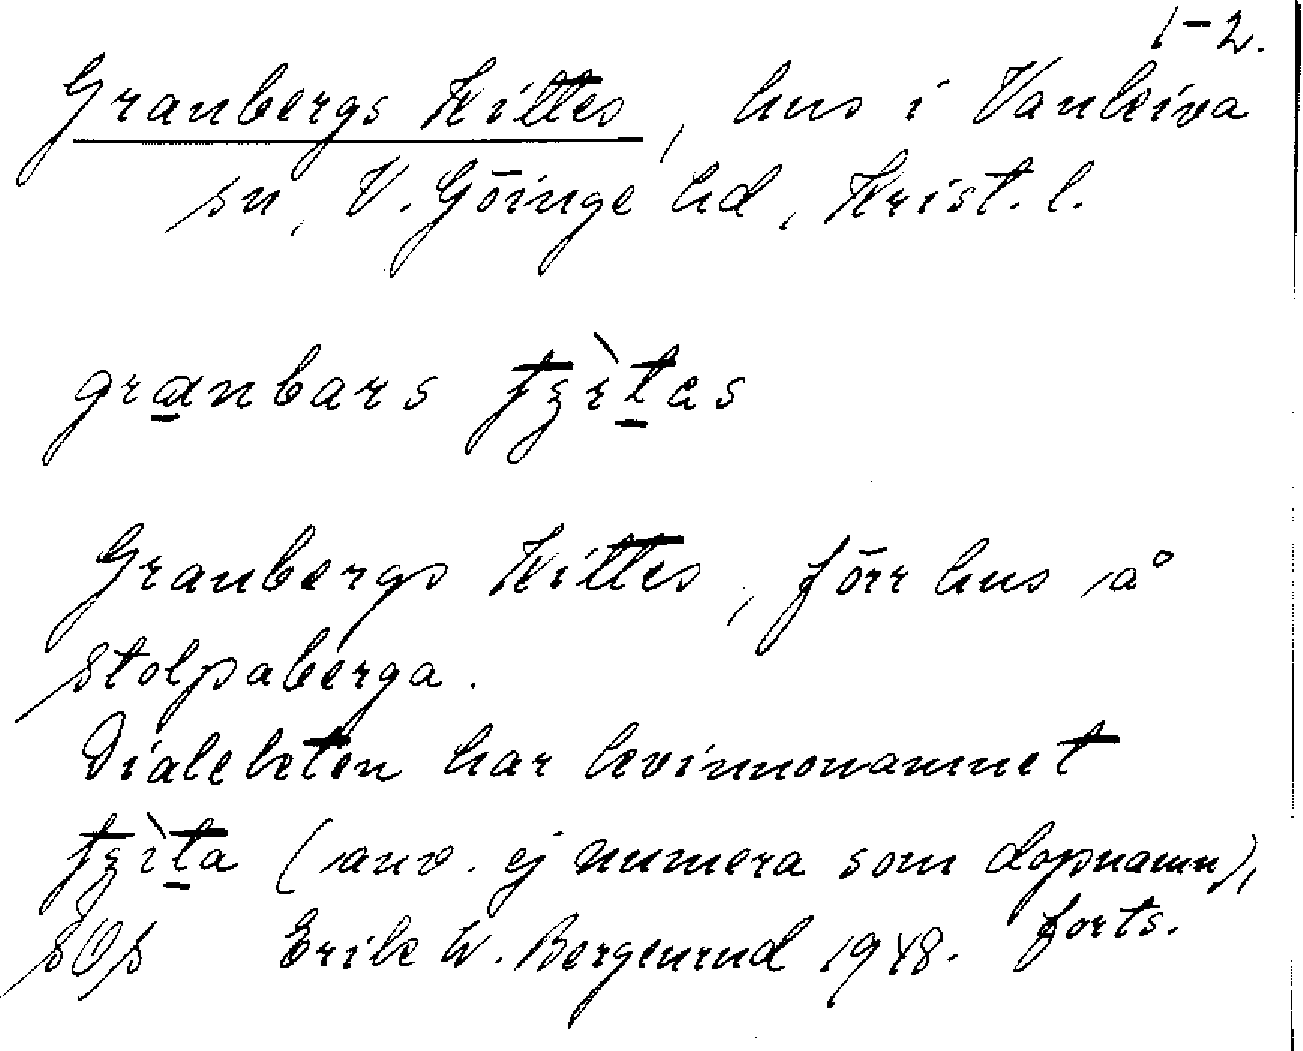 1-2.
Granbergs Kittes, hus i Vankiva
sn, V. Göinge hd, Krist. l.
granbars tʒìtas
Granbergs Kittes, förr hus å
Stolpaberga.
Dialekten har kvinnonamnet
tʒìta (anv. ej numera som dopnamn),
forts.
SOÅ Erik W. Bergenrud 1948.